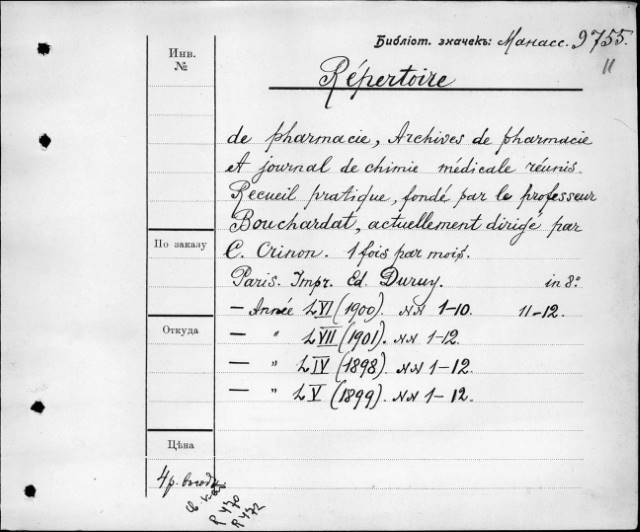 Библіот. значекъ: Манасс. 9755.
11
Инв.
№
Répertoire
de pharmacie, Archives de pharmacie
et journal de chimie médicale réunis.
Recueil pratique, fondé par le professeur
Bouchardat, actuellement dirigé par
По заказу
C. Crinon. 1 fois par mois.
Paris. Impr. Ed. Duruy. in 8°
— Année LVI (1900). NN 1-10. 11-12.
Откуда
— " LVII (1901). NN 1-12.
— " LIV (1898) NN 1-12.
— " LV (1899). NN 1-12.
Цѣна
4 р.
P 470
P 472